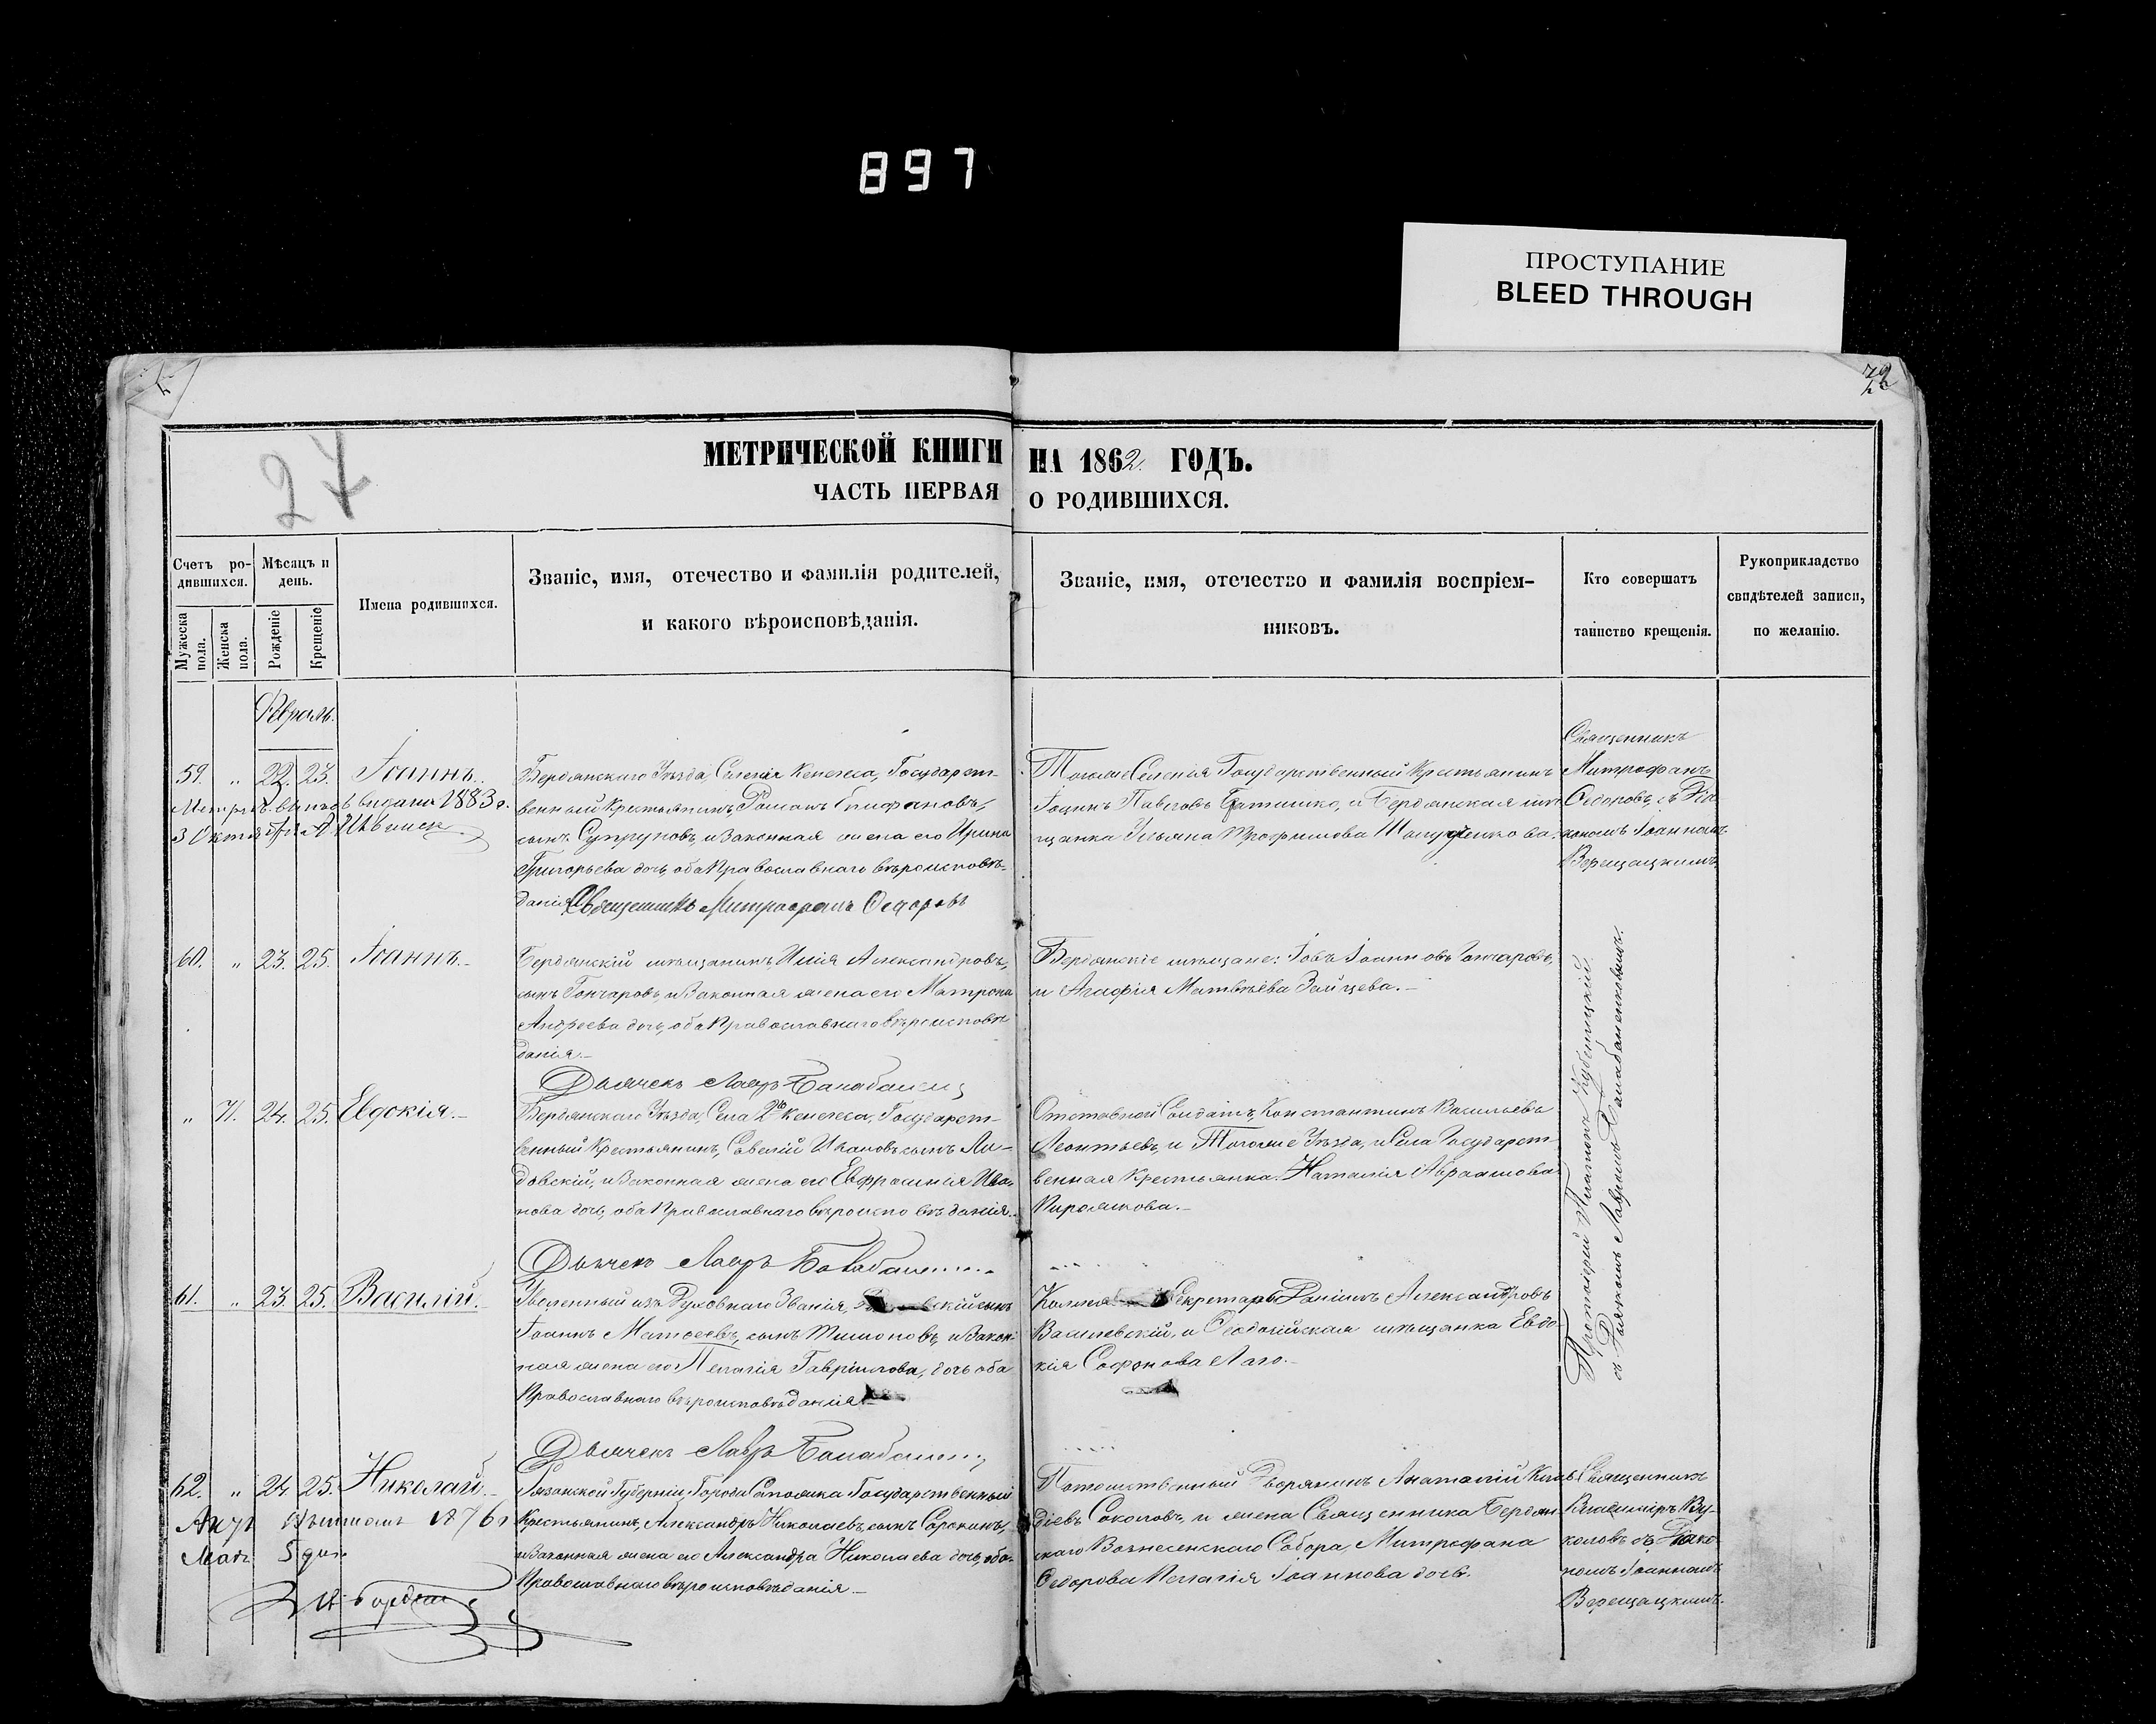 897
ПРОСТУПАНИЕ
BLEED THROUGH
72
27
МЕТРИЧЕСКОЙ КНИГИ НА 1862 ГОДЪ.
ЧАСТЬ ПЕРВАЯ О РОДИВШИХСЯ.
Счетъ ро-
дившихся.
Мѣсяцъ и
день.
Мужеска
пола.
Женска
пола.
Рожденіе
Крещеніе
Имена родившихся.
Званіе, имя, отечество и фамилія родителей,
и какого вѣроисповѣданія.
Званіе, имя, отечество и фамилія воспріем-
никовъ.
Кто совершатъ
таинство крещенія.
Рукоприкладство
свидѣтелей записи,
по желанію.
Февраль.
59. " 22. 23. Іоаннъ.
выдана 1883 г.
3 Октя
Бердянскаго Уѣзда, Селенія Кенегеса, Государст-
венный Крестьянинъ, Романъ
сынъ Супруновъ, и законная жена его Ирина
Григорьева дочь, оба Православнаго вѣроисповѣ-
данія. Священникъ Митрофанъ Федоровъ
Тогоже Селенія Государственный Крестьянинъ
Іоаннъ Павловъ и Бердянская мѣ-
щанка Ульяна Трофимова
Священникъ
Митрофанъ
Федоровъ, съ Діа-
кономъ Іоанномъ
Верещацкимъ.
60. " 23. 25. Іоаннъ.
Бердянскій мѣщанинъ Илія Александровъ,
сынъ Гончаровъ, и законная жена его Матрона
Андреева дочь, оба Православнаго вѣроисповѣ-
данія.
Дьячекъ Лавръ
Бердянскіе мѣщане: Іовъ Іоанновъ Гончаровъ,
и Агафія Матвѣева Зайцева.
Протоіерей Платонъ
съ Дьячкомъ Лавромъ
" 71. 24. 25. Евдокія.
Бердянскаго Уѣзда, Села 2го Кенегеса, Государст-
венный Крестьянинъ, Савелій Ивановъ сынъ Ли-
довскій, и законная жена его Евфросинія Ива-
нова дочь, оба Православнаго вѣроисповѣданія.
Дьячекъ Лавръ
Отставной Солдатъ, Константинъ Васильевъ
Леонтьевъ, и Тогоже Уѣзда, и Села Государст-
венная Крестьянка Наталія Абрамова
61. " 23. 25. Василій.
Уволенный изъ Духовнаго Званія,
Іоаннъ Матѳеевъ, сынъ Тимоновъ, и закон-
ная жена его Пелагія Гавріилова, дочь оба
Православнаго вѣроисповѣданія
Дьячекъ Лавръ
Секретарь Александровъ
Василевскій, и Ѳеодосійская мѣщанка Евдо-
кія Софонова
62. " 24. 25. Николай.
1876 г
Март 5 дня
Рязанской Губерніи, Города Сапожка Государственный
Крестьянинъ, Александръ Николаевъ, сынъ Сорокинъ,
и законная жена его Александра Николаева дочь, оба
Православнаго вѣроисповѣданія.
Потомственный Дворянинъ Анатолій
Соколовъ, и жена Священника Бердян-
скаго Вознесенскаго Собора, Митрофана
Федорова Пелагія Іоаннова дочь.
Священникъ
Владиміръ Ву-
коловъ съ Діако-
номъ Іоанномъ
Верещацкимъ.